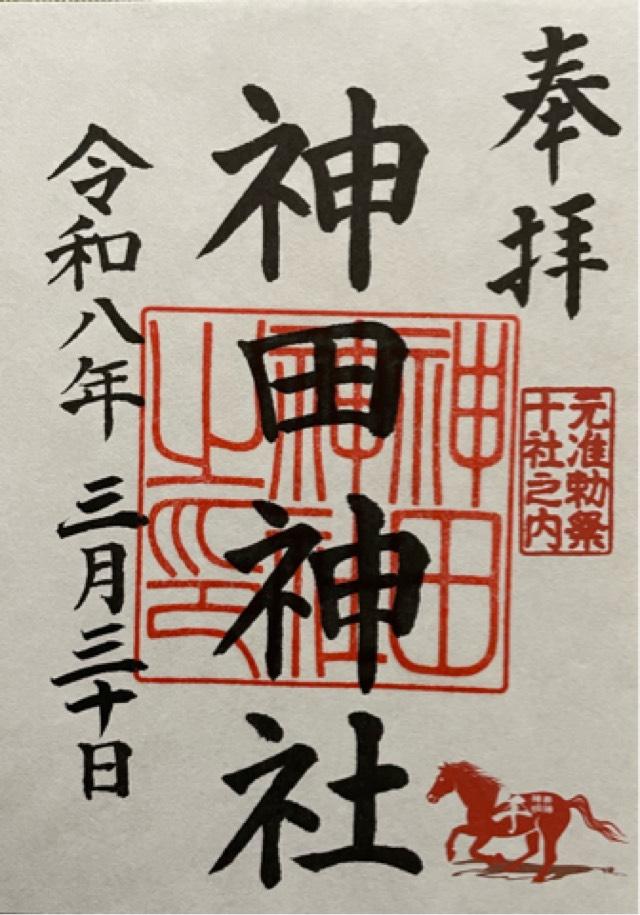 奉拝
元准勅祭
十社之内
神田神社
神田
神社
之印
令和八年 三月三十日
午